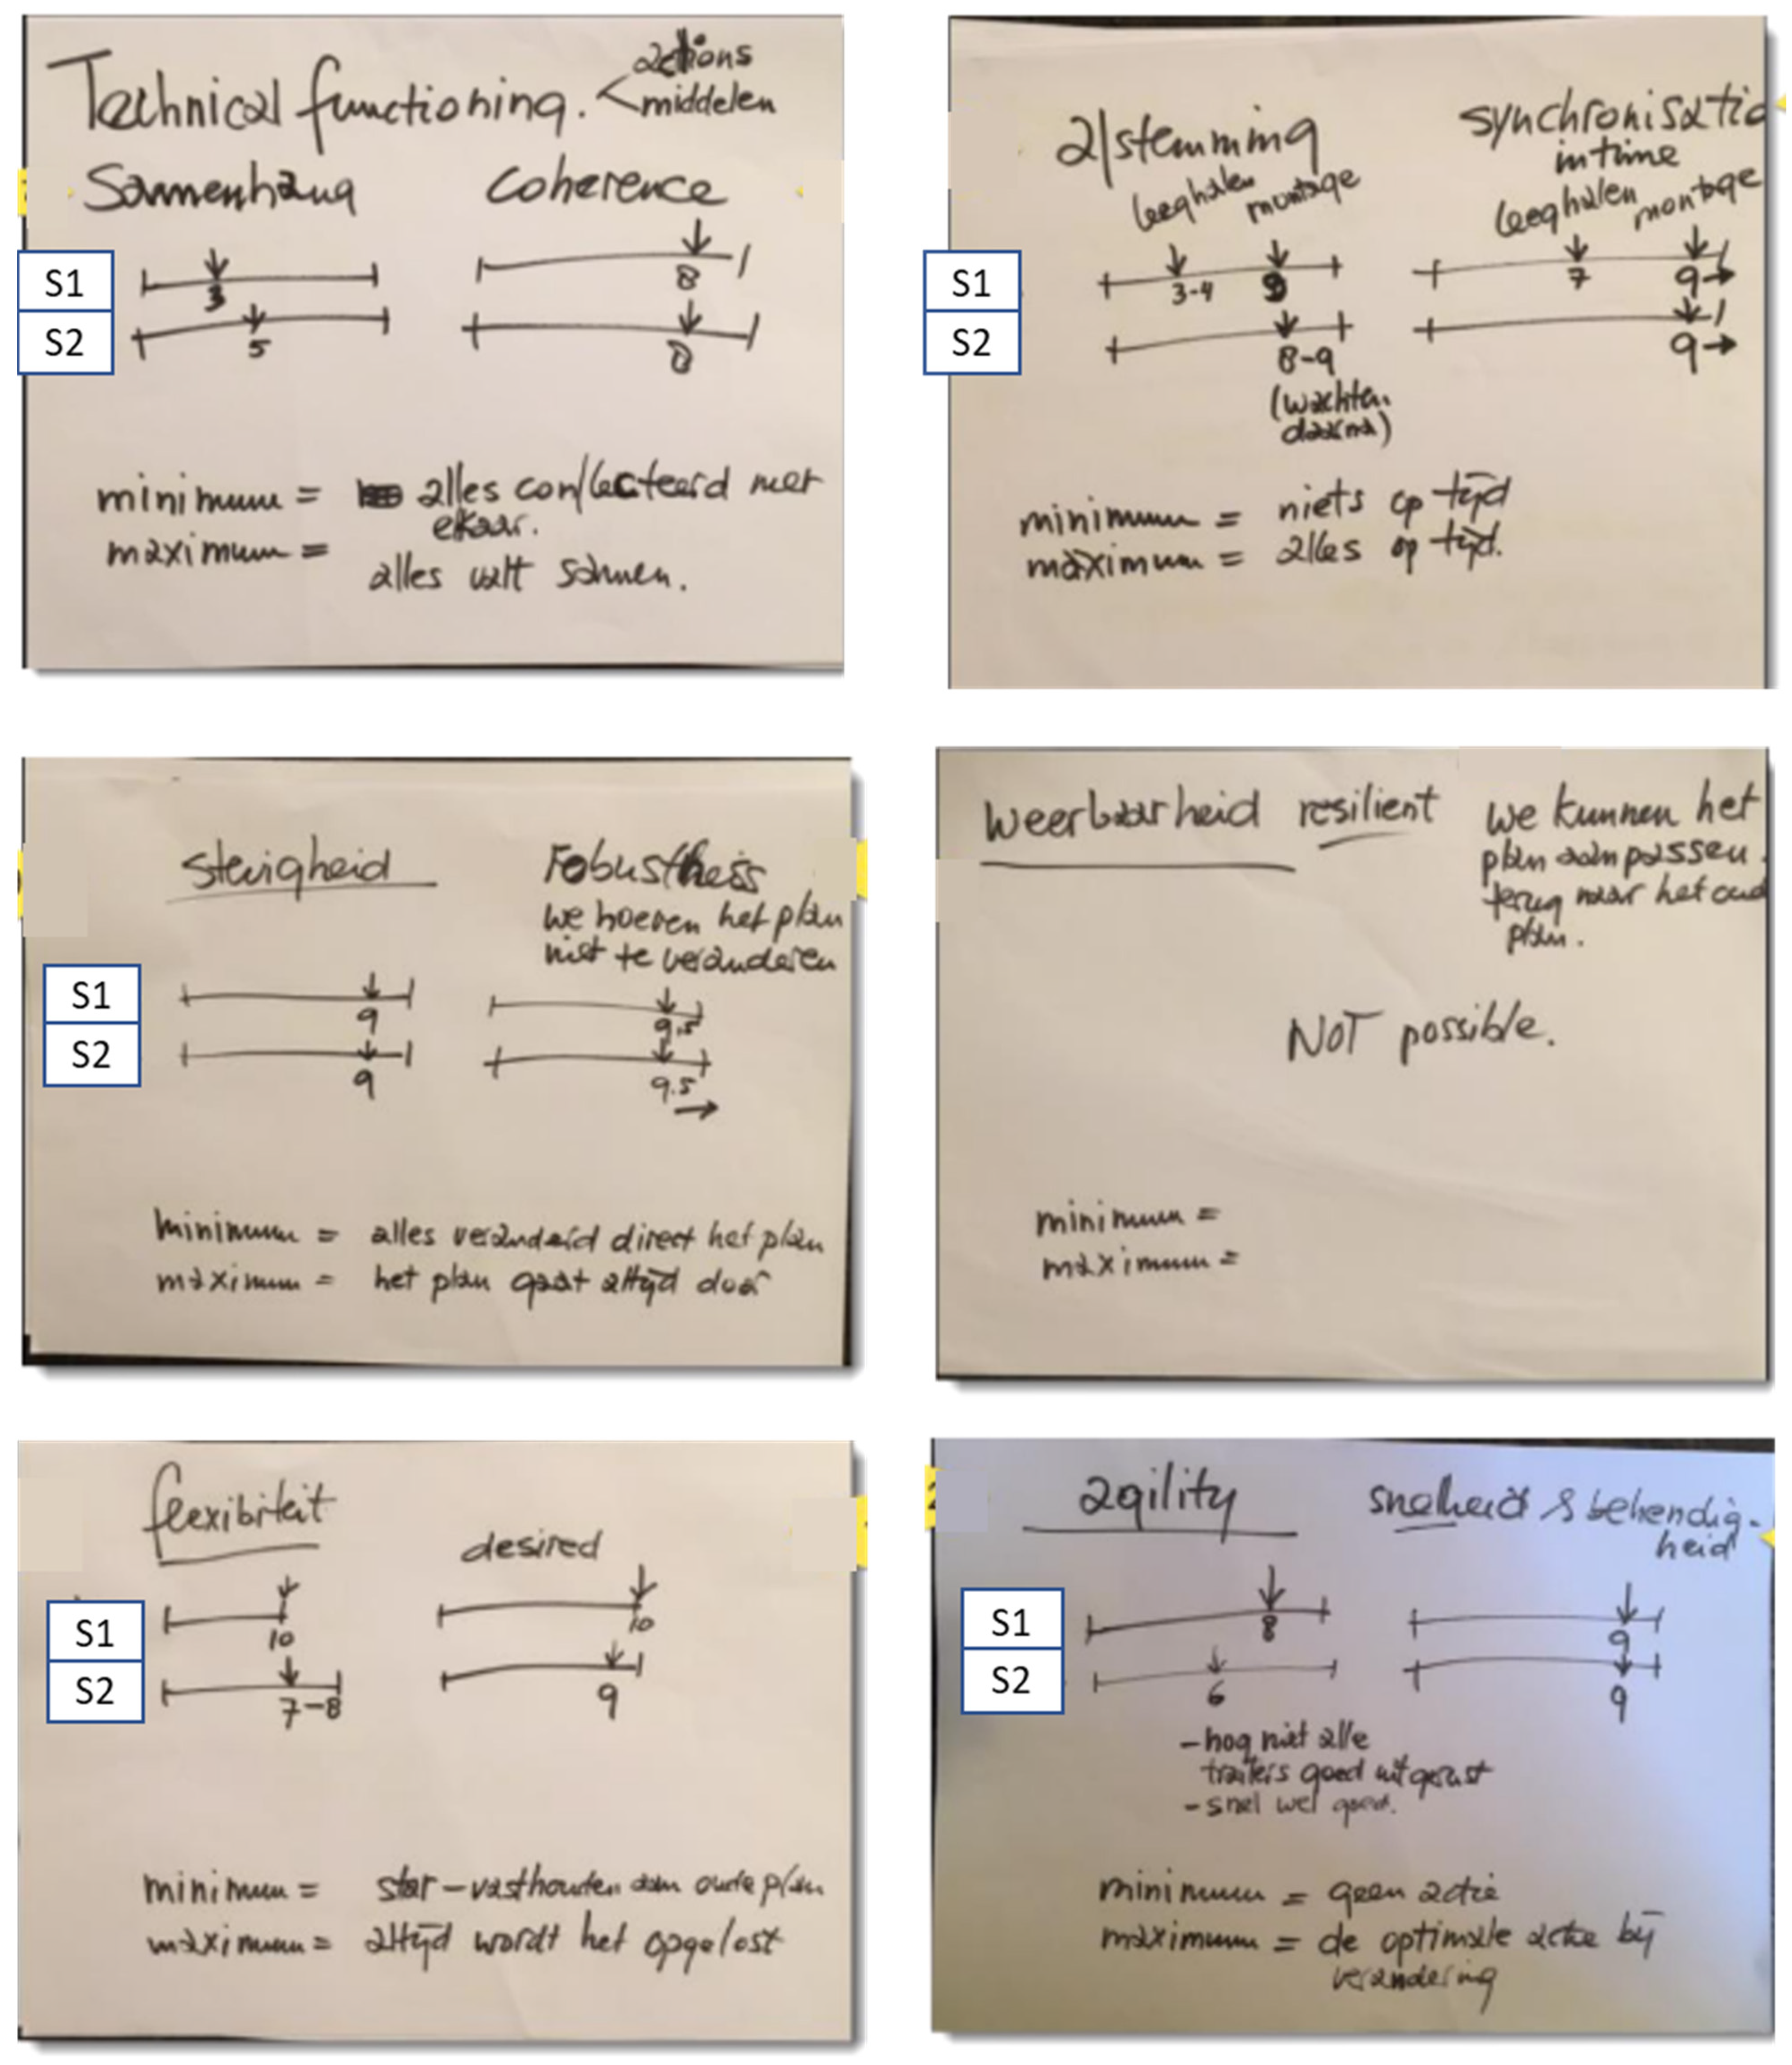 Technical functioning. < actions
middelen
Samenhang coherence
S1 3 8
S2 5 8
minimum = alles conflecteerd met
elkaar.
maximum =
alles valt samen.
afstemming synchronisatio
in time
leeghalen montage leeghalen montage
S1 3-4 9 7 9→
S2 8-9 9→
(wachten
daarna)
minimum = niets op tijd
maximum = alles op tijd.
stevigheid robustheiss
we hoeven het plan
niet te veranderen
S1 9 9.5
S2 9 9.5
→
minimum = alles veranderd direct het plan
maximum = het plan gaat altijd door
weerbaarheid resilient we kunnen het
plan aanpassen.
terug naar het oud
plan.
NOT possible.
minimum =
maximum =
flexibiteit
desired
S1 10 10
S2 7-8 9
minimum = star-vasthouden aan oude plan
maximum = altijd wordt het opgelost
agility snelheid & behendig-
heid
S1 8 9
S2 6 9
- nog niet alle
trailers goed uitgerust
- snel wel goed.
minimum = geen actie
maximum = de optimale actie bij
verandering